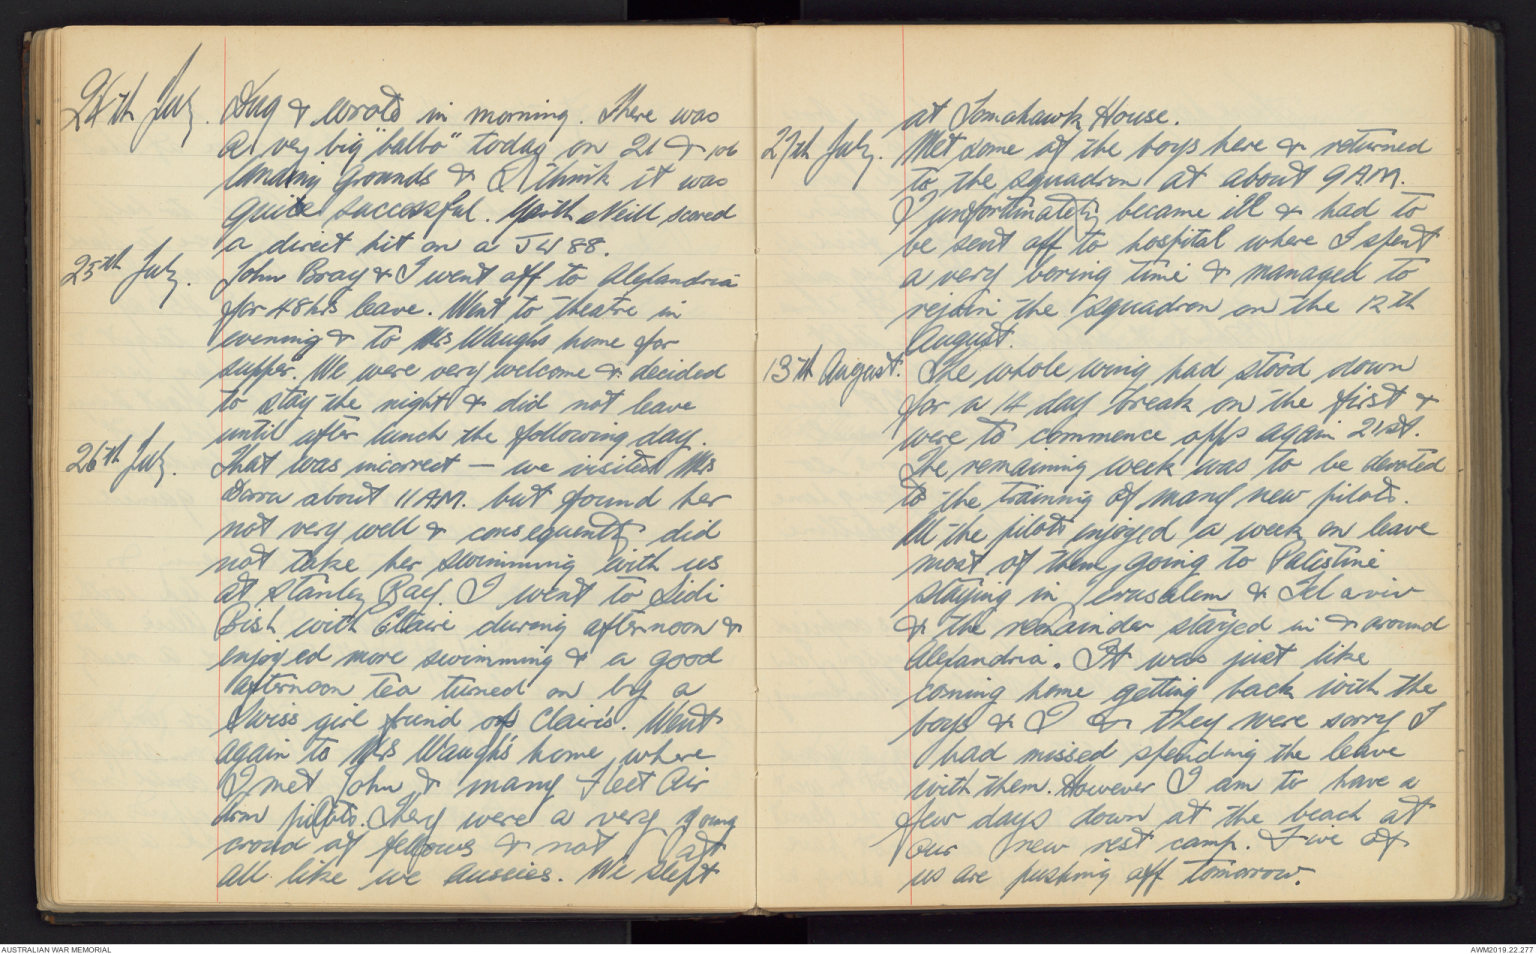 24th July. Dug & wrote in morning. There was
a very big "balbo" today on 21 & 106
landing grounds & I think it was
quite successful. Garth Neill scored
a direct hit on a JU 88.
25th July. John Bray & I went off to Alexandria
for 48 hrs leave. Went to theatre in
evening & to Mrs Waughs home for
supper. We were very welcome & decided
to stay the night & did not leave
until after lunch the following day.
26th July. That was incorrect — we visited Mrs
about 11 AM. but found her
not very well & consequently did
not take her swimming with us
at Stanley Bay. I went to Sidi
Bish with Claire during afternoon &
enjoyed more swimming & a good
afternoon tea turned on by a
Swiss girl friend of Claire's. Went
again to Mrs Waugh's home where
I met John & many Fleet Air
Arm pilots. They were a very young
crowd of fellows & not at
all like we Aussies. We slept
at Tomahawk House.
27th July. Met some of the boys here & returned
to the squadron at about 9 AM.
I unfortunately became ill & had to
be sent off to hospital where I spent
a very boring time & managed to
rejoin the squadron on the 12th
August.
13th August. The whole wing had stood down
for a 14 day break on the first &
were to commence opps again 21st.
The remaining week was to be devoted
to the training of many new pilots.
All the pilots enjoyed a week on leave
most of them going to Palestine
staying in Jerusalem & Tel aviv
& the remainder stayed in & around
Alexandria. It was just like
coming home getting back with the
boys & I & they were sorry I
had missed spending the leave
with them. However I am to have a
few days down at the beach at
our new rest camp. Five of
us are pushing off tomorrow.
AUSTRALIAN WAR MEMORIAL
AWM2019.22.277